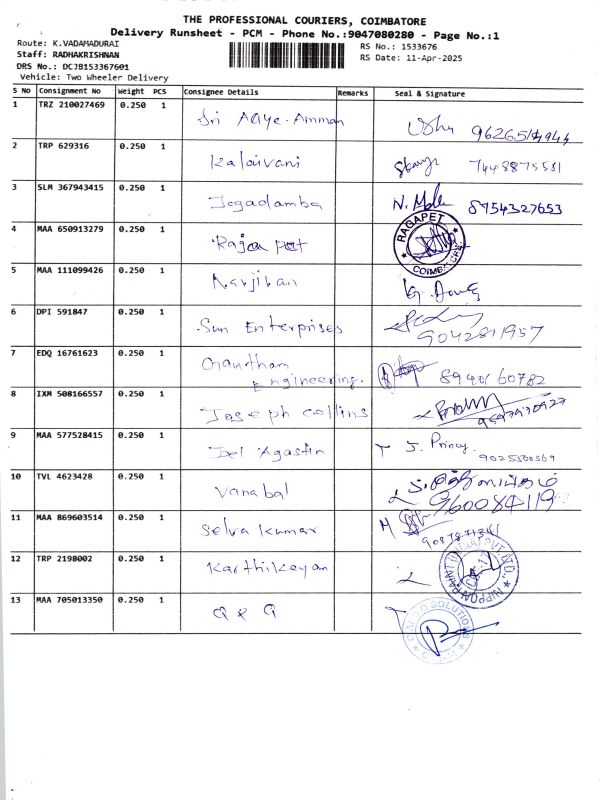 THE PROFESSIONAL COURIERS, COIMBATORE
Delivery Runsheet - PCM - Phone No.:9047080280 - Page No.:1
Route: K.VADAMADURAI
Staff: RADHAKRISHNAN
DRS No.: DCJB153367601
Vehicle: Two Wheeler Delivery
RS No.: 1533676
RS Date: 11-Apr-2025
S No Consignment No Weight PCS Consignee Details Remarks Seal & Signature
1 TRZ 210027469 0.250 1 Sri Aaye Amman Usha
2 TRP 629316 0.250 1 Kalaivani 7448875531
3 SLM 367943415 0.250 1 Jegadamba 8954327653
4 MAA 650913279 0.250 1 Rajaa pet RAGAPET COIMBATORE
5 MAA 111099426 0.250 1
6 DPI 591847 0.250 1 Sun Enterprises 9042811957
7 EDQ 16761623 0.250 1 Gautham
Engineering. 8940160782
8 IXM 508166557 0.250 1 Joseph collins
9 MAA 577528415 0.250 1 Joel Agastin J. Princy
9025500369
10 TVL 4623428 0.250 1 Vanabal
960084119
11 MAA 869603514 0.250 1 Selva kumar
12 TRP 2198002 0.250 1 Karthikeyan NIPPON PAINT
13 MAA 705013350 0.250 1 Q & Q SOLUTIONS